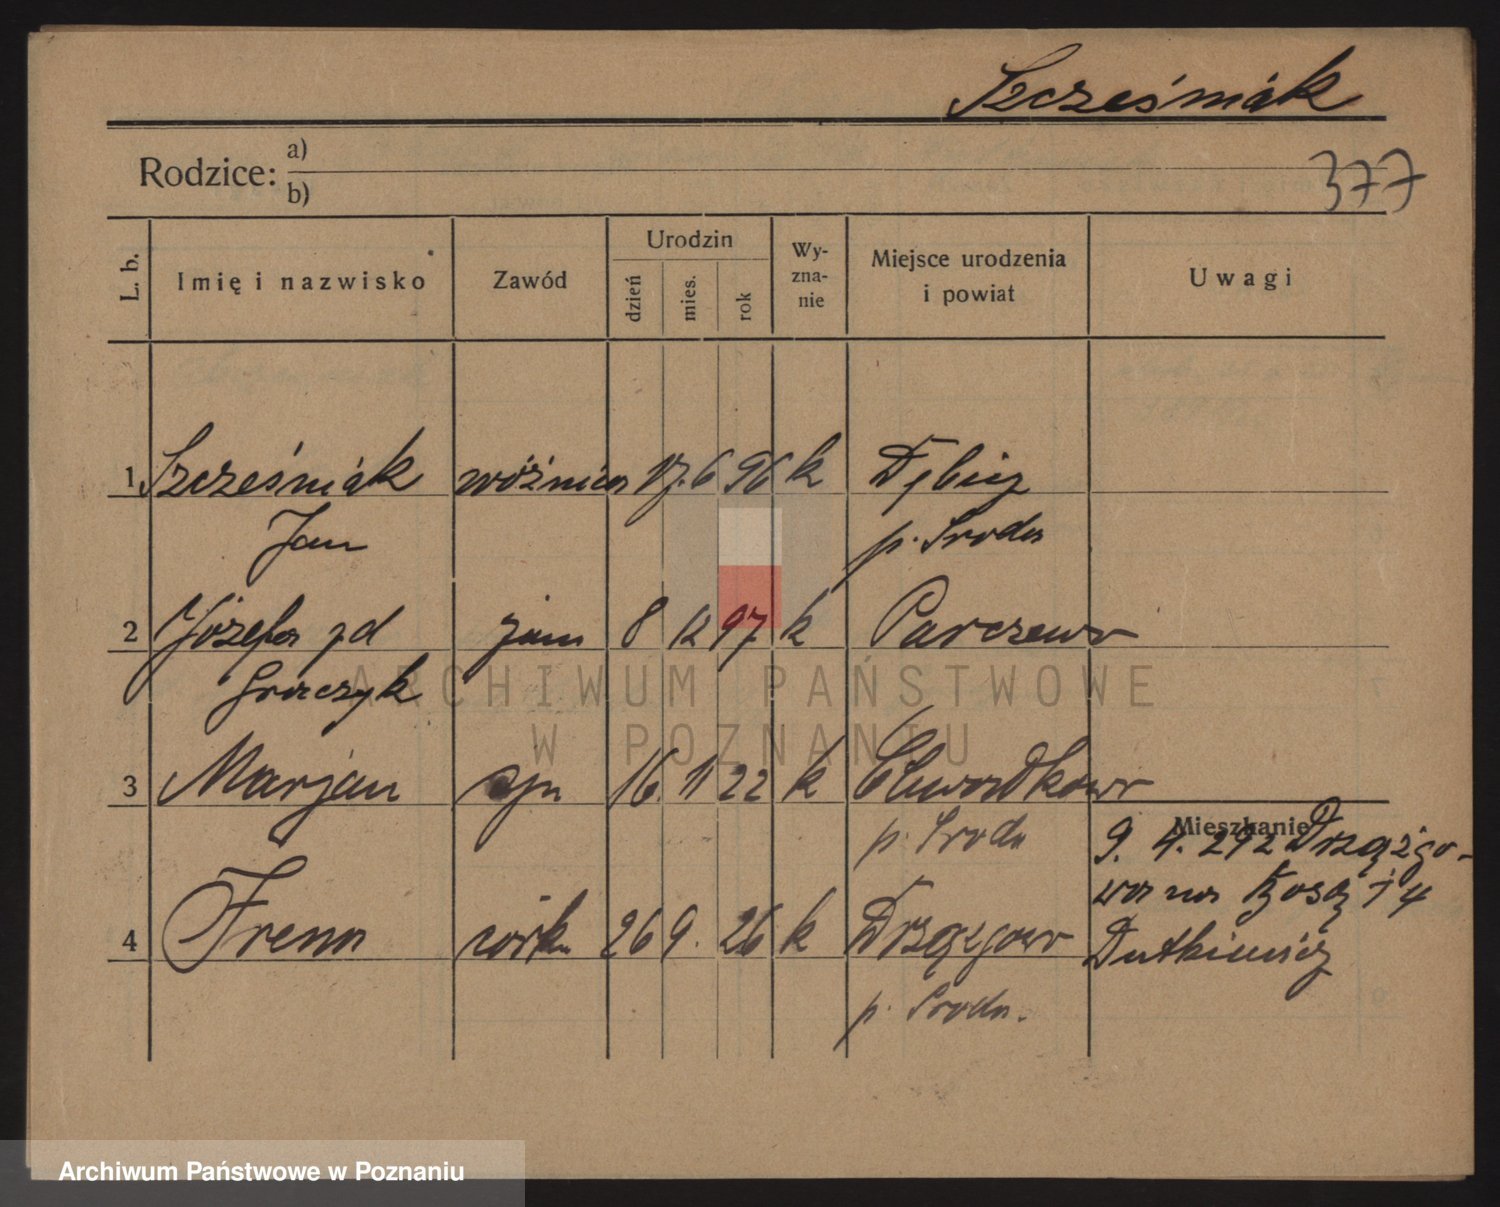 Szcześniak
Rodzice: a)
b)
377
L. b. Imię i nazwisko Zawód Urodzin dzień mies. rok Wyznanie Miejsce urodzenia i powiat Uwagi
1 Szcześniak woźnica 17. 6 96 k Dębicz
Jan p. Środa
2 Józefa żam 8 12 97 k Parczewo
Graczyk
3 Marjan syn 16. 11 22 k
p. Środa
Mieszkanie
9. 4. 292 Drzązgo-
wa na
4 Irena córka 26 9. 26 k Drzązgowo
Dutkiewicz
p. Środa.
ARCHIWUM PAŃSTWOWE
W POZNANIU
Archiwum Państwowe w Poznaniu